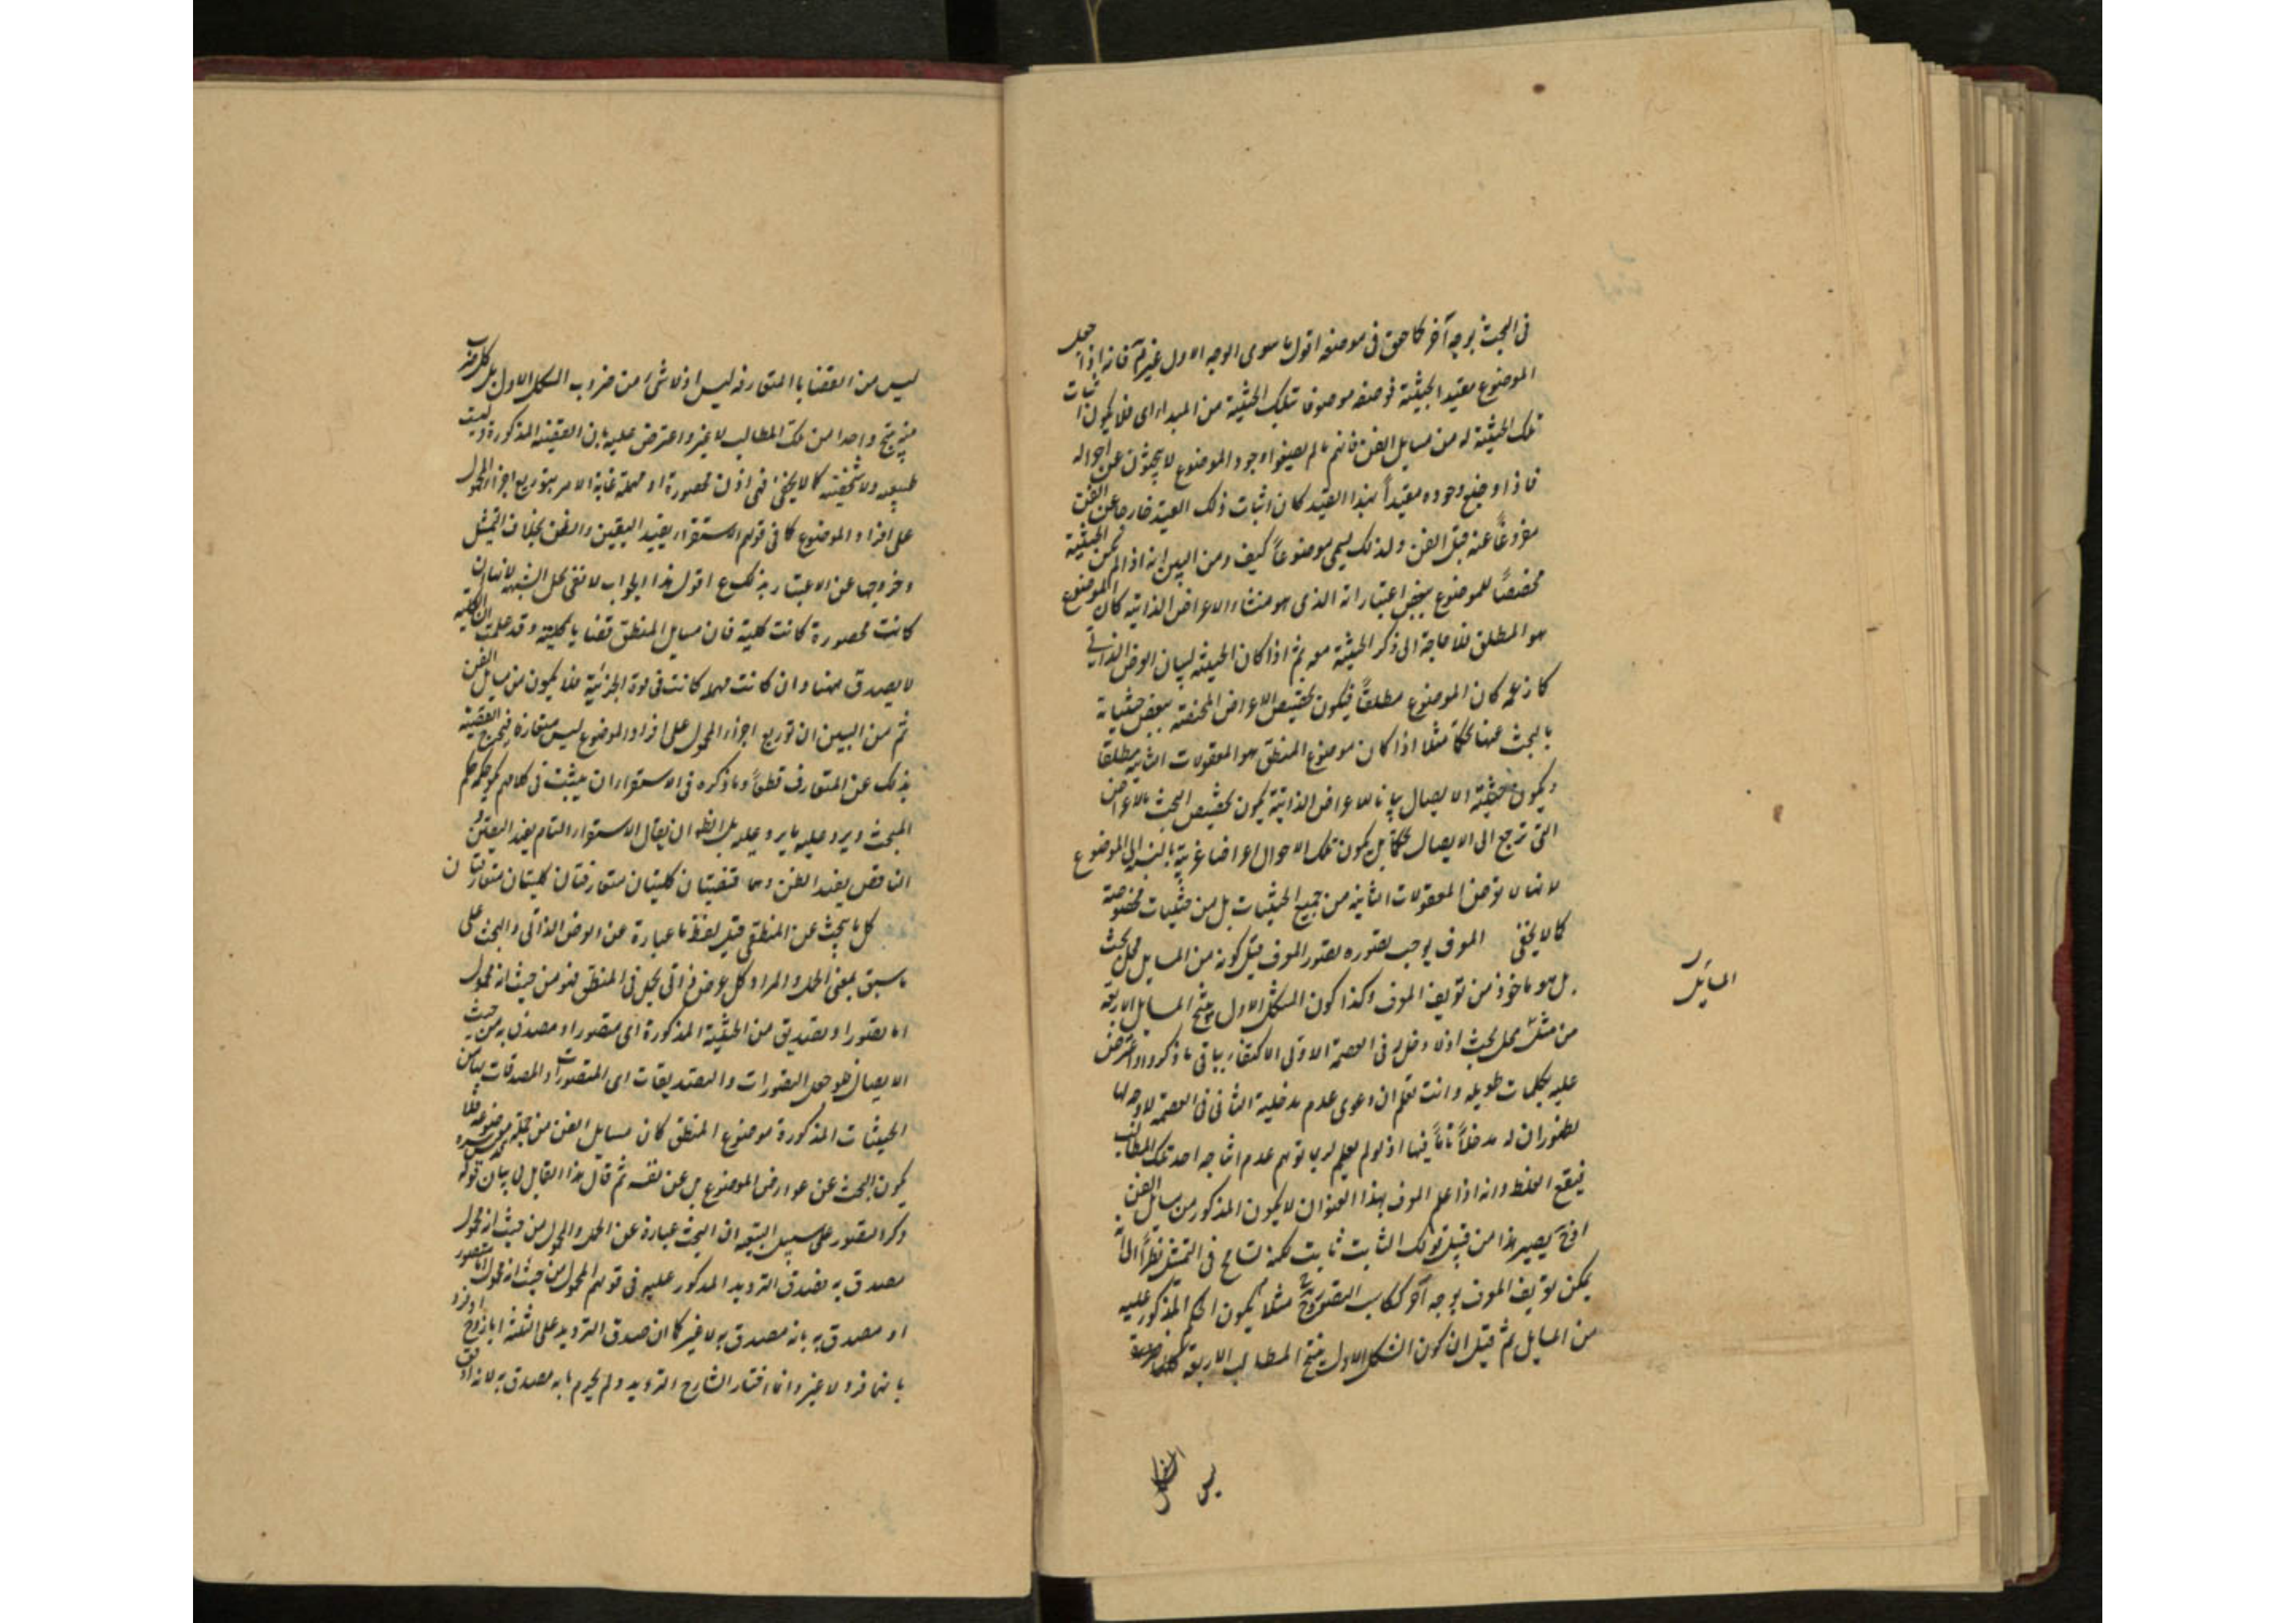 فى البحث بوجه آخر كما حقق فى موضعه اقول ما سوى الوجه الاول غير تم فانه اذا جعل
الموضوع مقيد الحيثية فوضعه موصوفا بتلك الحيثية من المبداء اى فلا يكون اثبات
تلك الحيثية له من مسايل الفن فانهم ما لم يضعوا وجود الموضوع لا يبحثون عن احواله
فاذا وضع وجوده مقيداً بهذا القيد كان اثبات ذلك القيد خارجا عن الفن
مفروغاً عنه قبل الفن ولذلك يسمى موضوعاً كيف ومن البين انه اذا لم يكن الحيثية
مخصصاً للموضوع ببعض اعتباراته الذى هو منشاء الاعراض الذاتية كان الموضوع
هو المطلق فلا حاجة الى ذكر الحيثية معه ثم اذا كان الحيثية لبيان العرض الذاتى
كما زعمه كان الموضوع مطلقاً فيكون تخصيص الاعراض المختصة ببعض حيثياته
بالبحث عنها تحكماً مثلا اذا كان موضوع المنطق هو المعقولات الثانية مطلقا
ويكون حيثية الايصال بيانا للاعراض الذاتية يكون تخصيص البحث بالاعراض
التى ترجع الى الايصال تحكما بل يكون تلك الاحوال اعراضا غريبة بالنسبة الى الموضوع
لانها لا تعرض المعقولات الثانية من جميع الحيثيات بل من حيثيات مخصوصة
كما لا يخفى المعرف يوجب تصوره تصور المعرف قيل كونه من المسايل محل بحث
بل هو ماخوذ من تعريف المعرف وكذا كون الشكل الاول ينتج المسايل الاربعة
من مثله محل بحث اذ لا دخل له فى العصمة الاولى الاكتفاء بباقى ما ذكروا واعترض
عليه بكلمات طويله وانت تعلم ان دعوى عدم مدخلية الثانى فى العصمة لا وجه لها
لظهور ان له مدخلاً تاماً فيها اذ لو لم يعلم لربما توهم عدم انتاجه احد تلك المطالب
فيقع الغلط وانه اذا علم المعرف بهذا العنوان لا يكون المذكور من مسايل الفن
اذ ح يصير هذا من قبيل قولك الثابت ثابت لكنه تسامح فى التمثيل نظراً الى انه
يمكن تعريف المعرف بوجه آخر ككاسب التصور وح مثلا يكون الحكم المذكور عليه
من المسايل ثم قيل ان كون الشكل الاول ينتج المطالب الاربعة
المسايل
ليس
ليس من القضايا المتعارفة ليس اذ لا شئ من ضروب الشكل الاول بل كل ضرب
منه ينتج واحدا من تلك المطالب لا غير واعترض عليه بان القضية المذكورة ليست
طبيعيه ولا شخصية كما لا يخفى فهى اذن محصورة او مهملة غاية الامر بتوزيع اجزاء المحمول
على افراد الموضوع كما فى قولهم الاستقراء يفيد اليقين والظن بخلاف التمثيل
وخروجها عن الاعتبار بذلك ع اقول هذا الجواب لا نفى بحل الشبهه لانها ان
كانت محصورة كانت كلية فان مسايل المنطق قضايا كلية وقد علمت ان الكلية
لا يصدق ههنا وان كانت مهمله كانت فى قوة الجزئية فلا يكون من مسايل الفن
ثم من البين ان توزيع اجزاء المحمول على افراد الموضوع ليس متعارفا فيخرج القضية
بذلك عن المتعارف قطعاً وما ذكره فى الاستقراء ان يثبت فى كلامهم
المبحث ويرد عليه ما يرد عليه بل الظ ان يقال الاستقراء التام يفيد اليقين و
الناقص يفيد الظن وهما قضيتان كليتان متعارفتان كليتان متعارفتان
كل ما يبحث عن المنطقى قيل لفظ ما عبارة عن العرض الذاتى والبحث على
ما سبق بمعنى الحمل والمراد كل عرض ذاتى يحمل فى المنطق فهو من حيث انه محمول
اما تصور او تصديق من الحيثية المذكورة اى متصور او مصدق به من حيث
الايصال فلو جعل التصورات والتصديقات اى المتصورات والمصدقات بيان
الحيثيات المذكورة موضوع المنطق كان مسايل الفن من جملة موضوعه فلا
يكون البحث عن عوارض الموضوع بل عن نفسه ثم قال هذا القايل فى بيان قوله
ذكر التصور على سبيل التبعيه ان البحث عبارة عن الحمل والمحمول من حيث انه محمول
مصدق به فصدق الترديد المذكور عليه فى قولهم المحمول من حيث انه محمول اما متصور
او مصدق به بانه مصدق به لا غير كما ان صدق الترديد على الثلثة اما زوج او فرد
بانها فرد لا غير وانما اختار الشارح الترديد ولم يجزم بانه مصدق به لانه اوفق